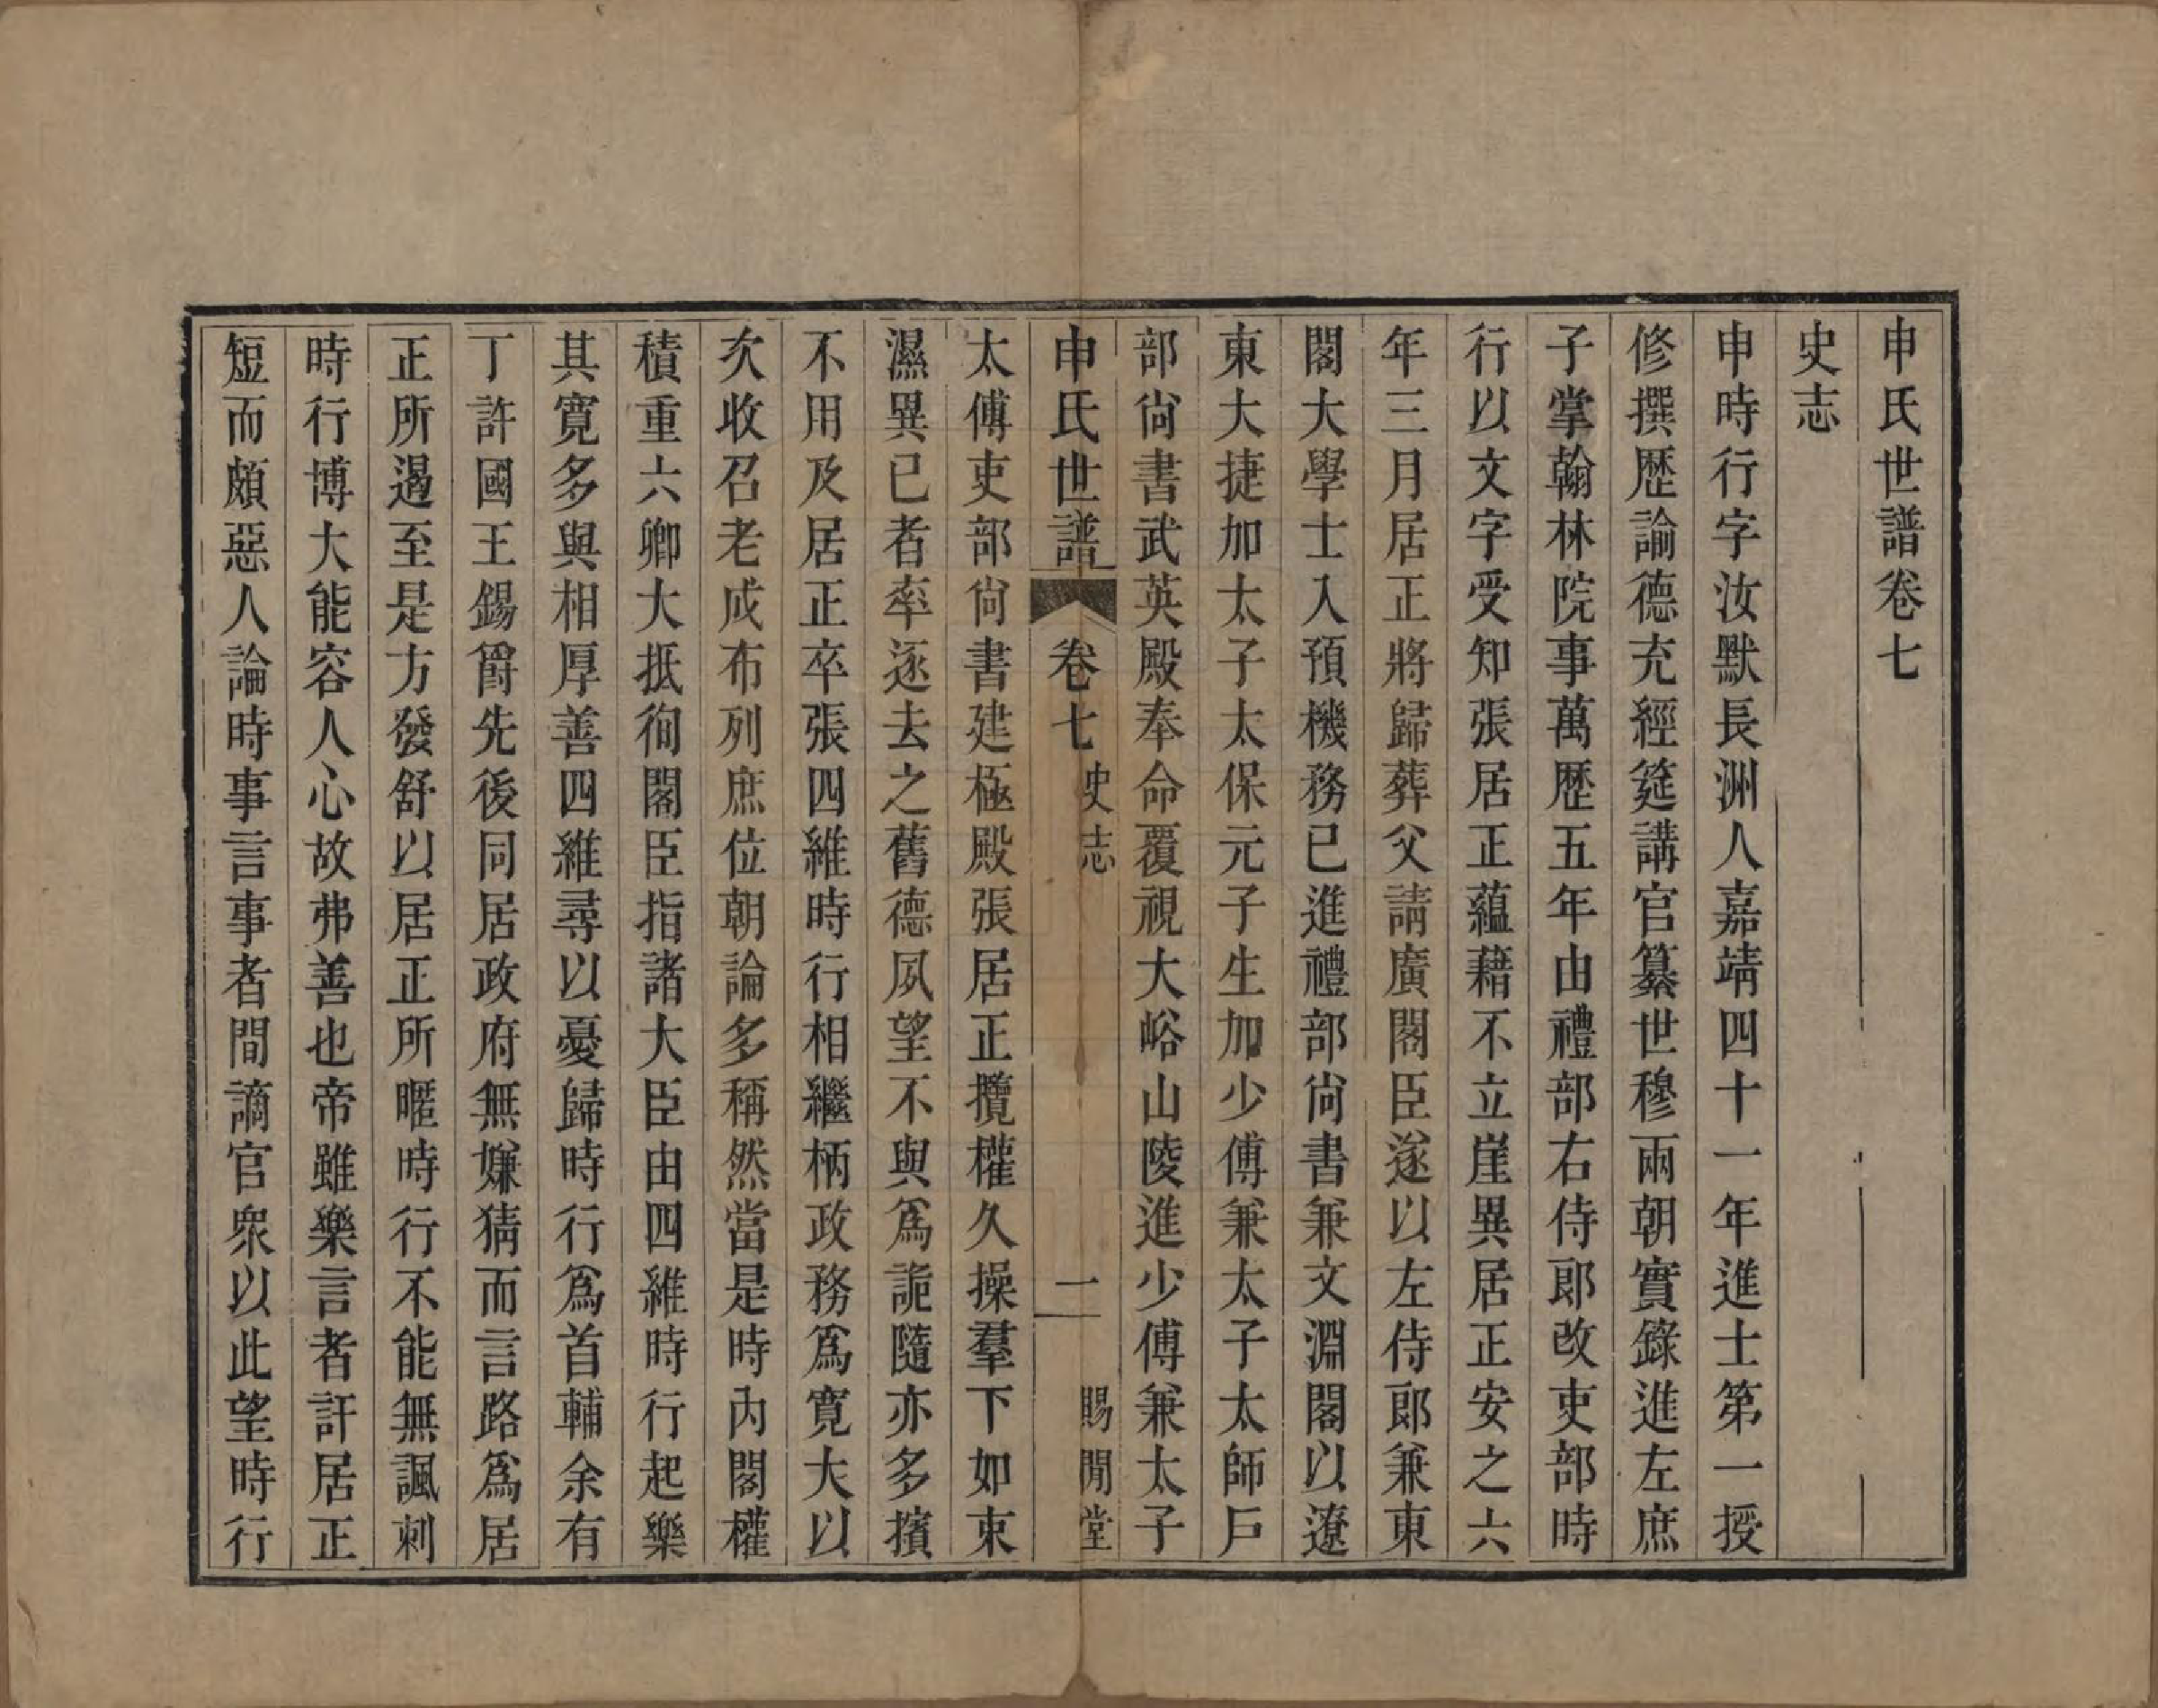 申氏世譜卷七
史志
申時行字汝默長洲人嘉靖四十一年進士第一授
修撰歷諭德充經筵講官纂世穆兩朝實錄進左庶
子掌翰林院事萬歷五年由禮部右侍郎改吏部時
行以文字受知張居正蘊藉不立崖異居正安之六
年三月居正將歸葬父請廣閣臣遂以左侍郎兼東
閣大學士入預機務已進禮部尚書兼文淵閣以遼
東大捷加太子太保元子生加少傅兼太子太師戶
部尚書武英殿奉命覆視大峪山陵進少傅兼太子
申氏世譜 卷七 史志 一 賜閒堂
太傅吏部尚書建極殿張居正攬權久操羣下如束
濕異已者率逐去之舊德夙望不與爲詭隨亦多擯
不用及居正卒張四維時行相繼柄政務爲寬大以
次收召老成布列庶位朝論多稱然當是時內閣權
積重六卿大抵徇閣臣指諸大臣由四維時行起樂
其寬多與相厚善四維尋以憂歸時行爲首輔余有
丁許國王錫爵先後同居政府無嫌猜而言路爲居
正所遏至是方發舒以居正所暱時行不能無諷刺
時行博大能容人心故弗善也帝雖樂言者訐居正
短而頗惡人論時事言事者間謫官衆以此望時行